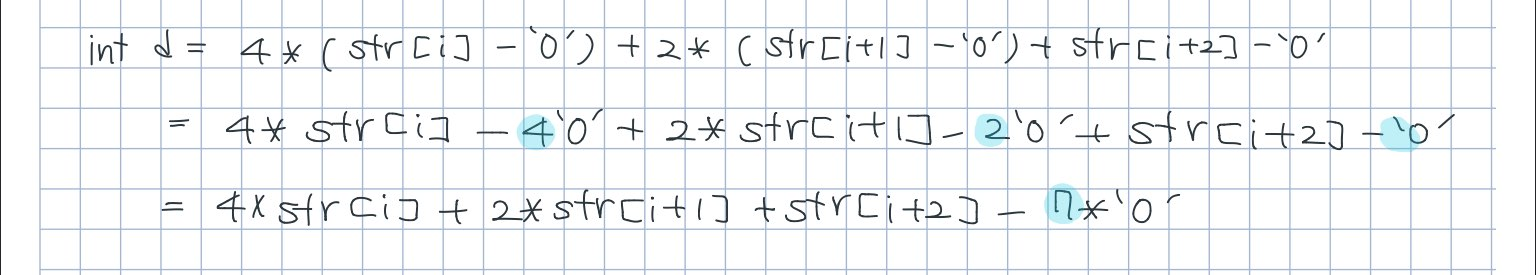 int d = 4*(str[i] - '0') + 2*(str[i+1] - '0') + str[i+2] - '0'
= 4* str[i] - 4'0' + 2* str[i+1] - 2'0' + str[i+2] - '0'
= 4* str[i] + 2* str[i+1] + str[i+2] - 7*'0'